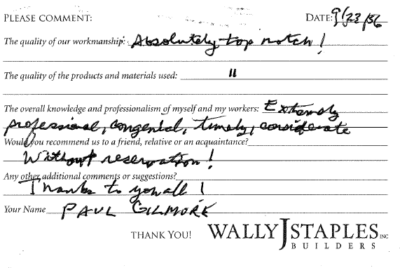 PLEASE COMMENT: DATE: 9/23/86
The quality of our workmanship: Absolutely top notch!
The quality of the products and materials used: "
The overall knowledge and professionalism of myself and my workers: Extremely
professional, congenial, timely, considerate
Would you recommend us to a friend, relative or an acquaintance?
Without reservation!
Any other additional comments or suggestions?
Thanks to you all!
Your Name PAUL GILMORE
THANK YOU! WALLY J STAPLES INC
BUILDERS